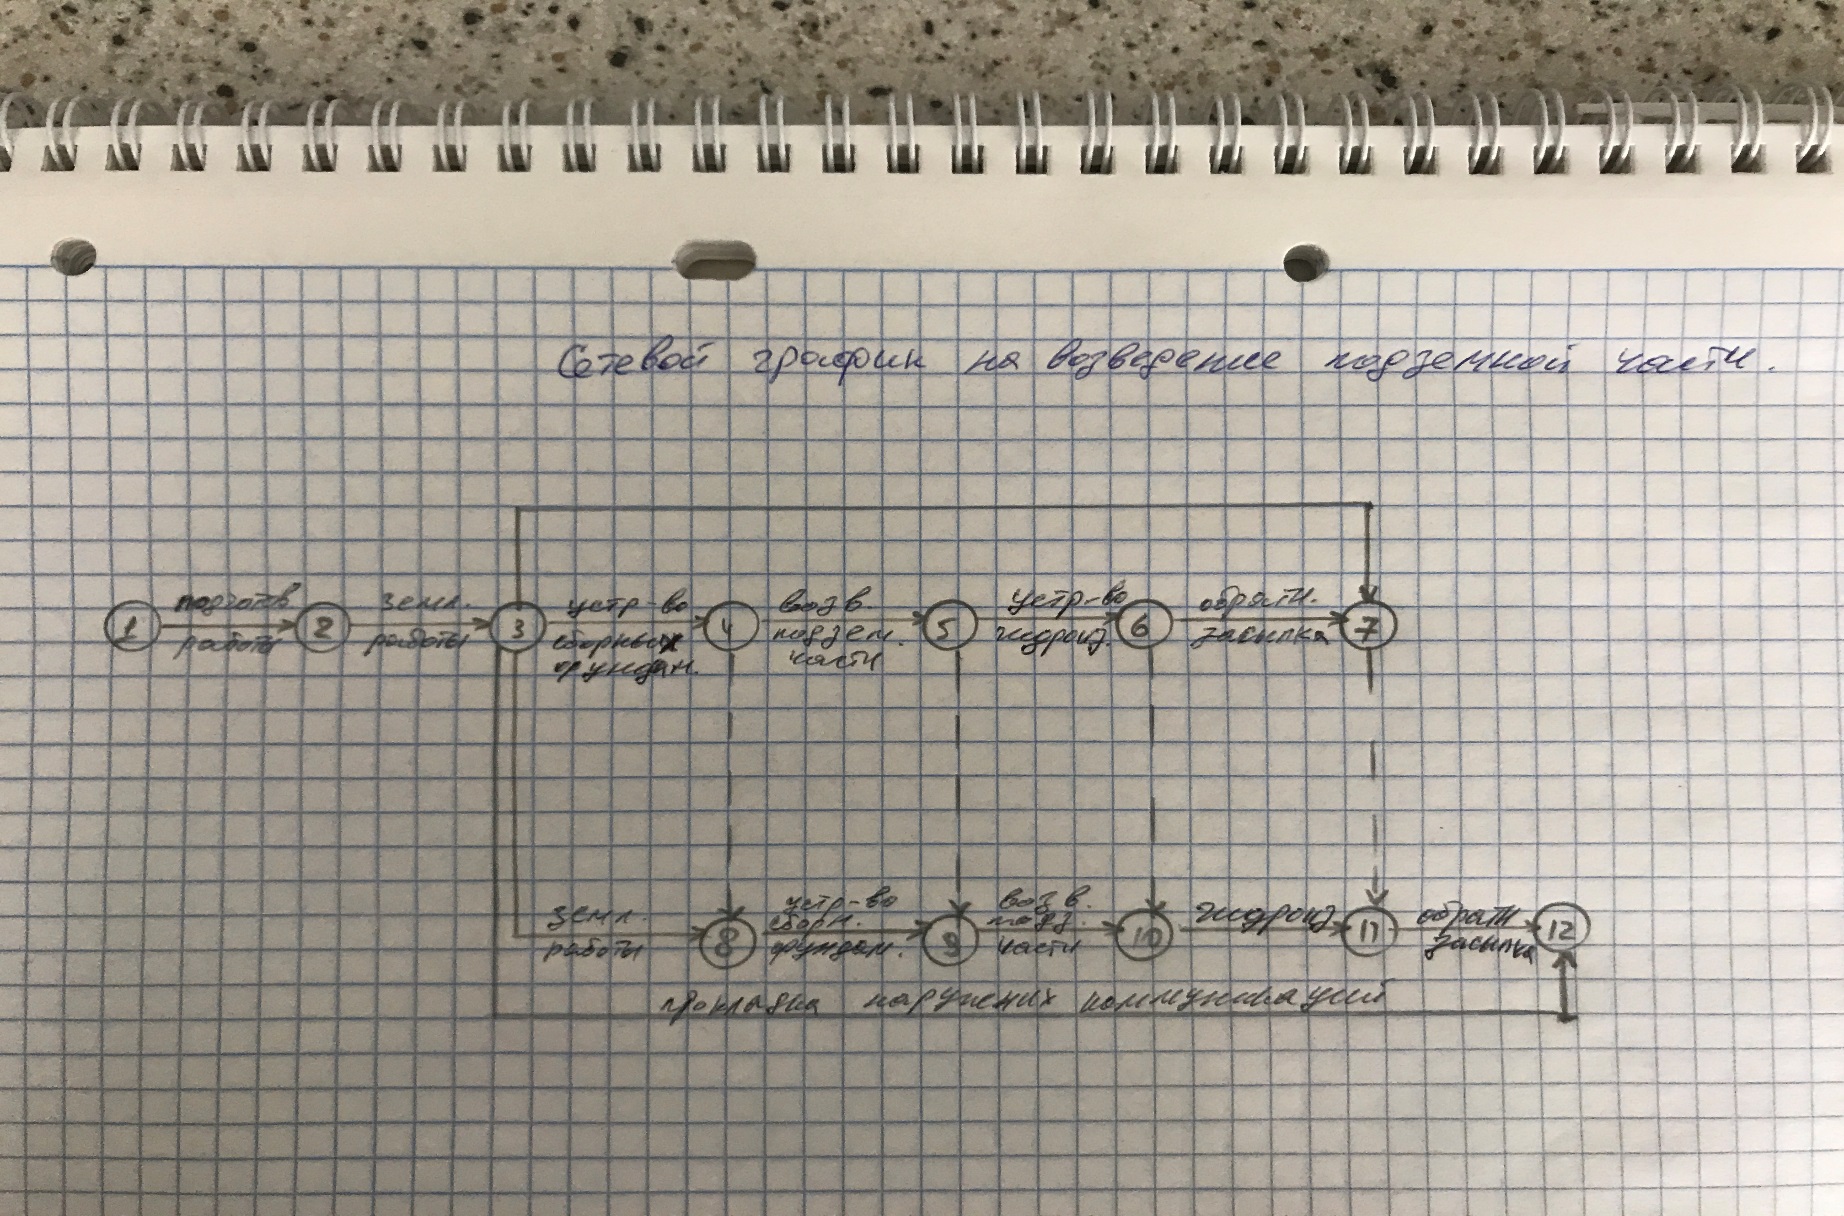 Сетевой график на возведение подземной части.
подготов.
работы
земл.
работы
устр-во
сборных
фундам.
возв.
подзем.
части
устр-во
гидроиз.
обратн.
засыпка
1
2
3
4
5
6
7
земл.
работы
устр-во
сборн.
фундам.
возв.
подз.
части
гидроиз.
обратн
засыпка
8
9
10
11
12
прокладка наружних коммуникаций